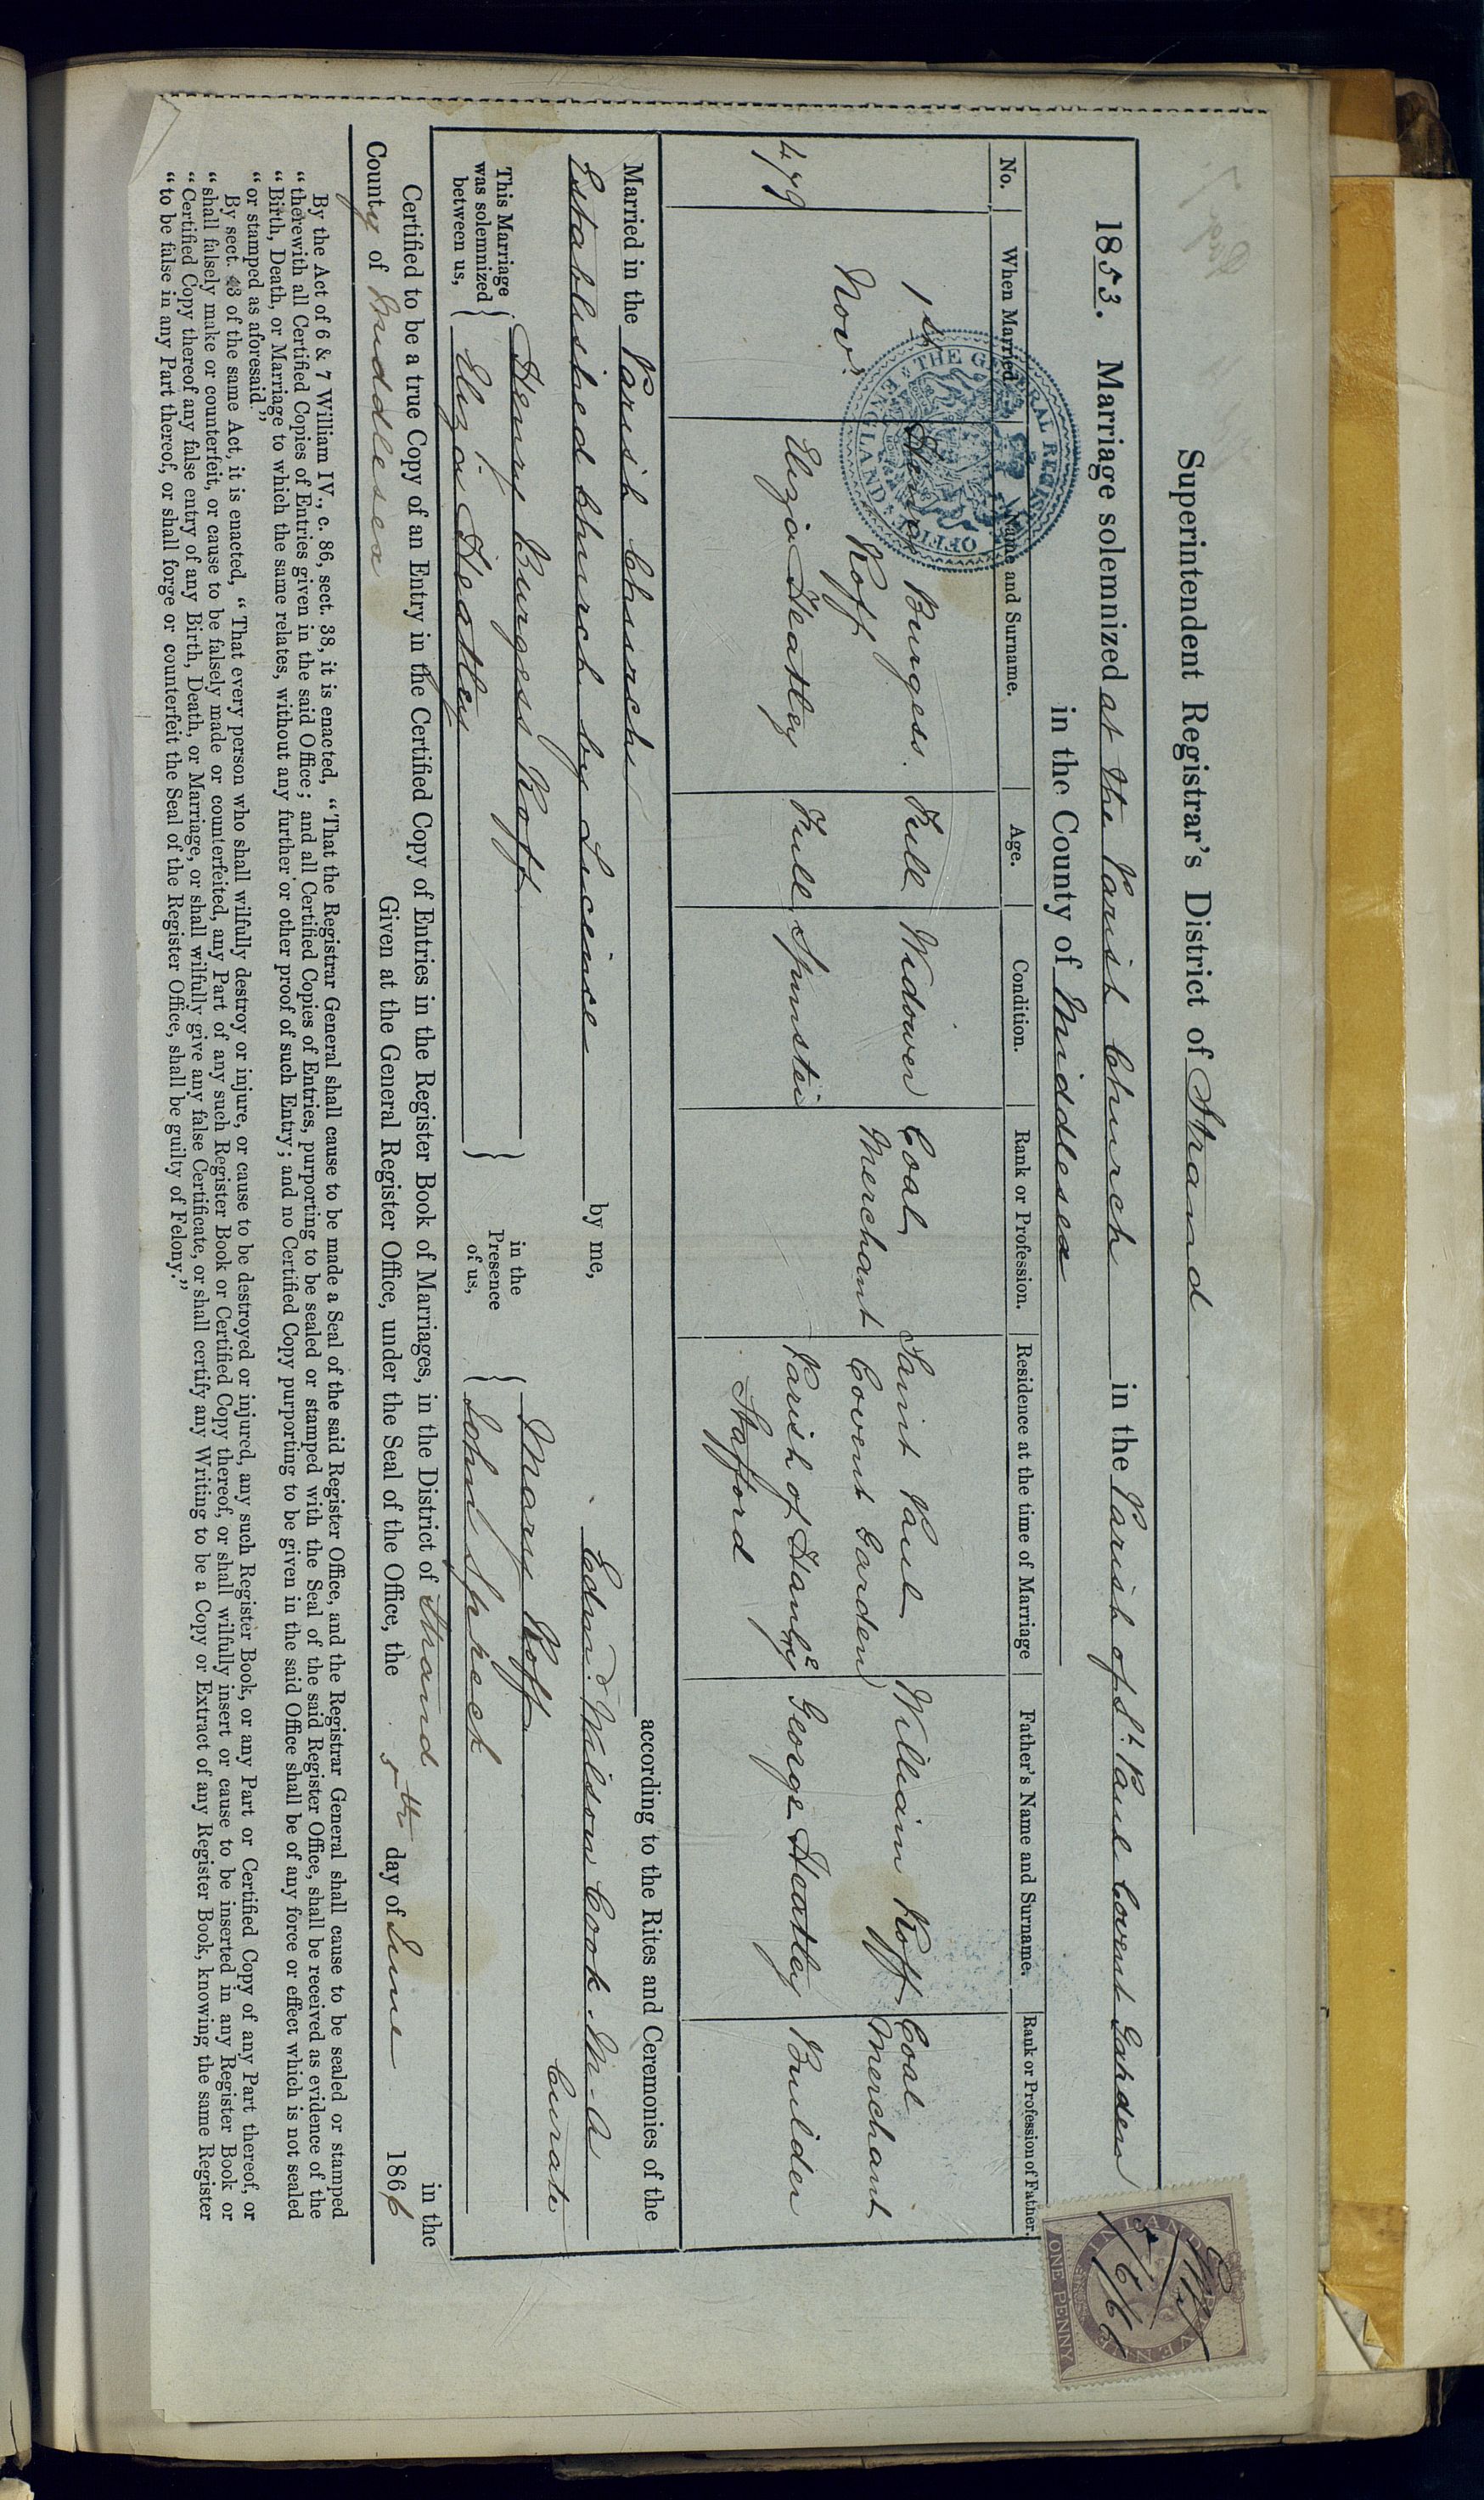 Superintendent Registrar's District of Strand
1853. Marriage solemnized at the Parish Church in the Parish of St. Paul Covent Garden
in the County of Middlesex
No. When Married. Name and Surname. Age. Condition. Rank or Profession. Residence at the time of Marriage Father's Name and Surname. Rank or Profession of Father.
479 1st Henry Burgess Full Widower Coal Saint Paul William Roff Coal
Novr. Roff Merchant Covent Garden Merchant
Eliza Heatley Full Spinster Parish of George Heatley Builder
Stafford
Married in the Parish Church according to the Rites and Ceremonies of the
Established Church by Licence by me,
Edwd. Wilson Cook. M.A
Curate
This Marriage
was solemnized
between us,
Henry Burgess Roff
Eliza Heatley
in the
Presence
of us,
Mary Roff
John Speck
Certified to be a true Copy of an Entry in the Certified Copy of Entries in the Register Book of Marriages, in the District of Strand in the
County of Middlesex Given at the General Register Office, under the Seal of the Office, the 5th day of June 1866
By the Act of 6 & 7 William IV., c. 86, sect. 38, it is enacted, "That the Registrar General shall cause to be made a Seal of the said Register Office, and the Registrar General shall cause to be sealed or stamped
"therewith all Certified Copies of Entries given in the said Office; and all Certified Copies of Entries, purporting to be sealed or stamped with the Seal of the said Register Office, shall be received as evidence of the
"Birth, Death, or Marriage to which the same relates, without any further or other proof of such Entry; and no Certified Copy purporting to be given in the said Office shall be of any force or effect which is not sealed
"or stamped as aforesaid."
By sect. 43 of the same Act, it is enacted, "That every person who shall wilfully destroy or injure, or cause to be destroyed or injured, any such Register Book, or any Part or Certified Copy of any Part thereof, or
"shall falsely make or counterfeit, or cause to be falsely made or counterfeited, any Part of any such Register Book or Certified Copy thereof, or shall wilfully insert or cause to be inserted in any Register Book or
"Certified Copy thereof any false entry of any Birth, Death, or Marriage, or shall wilfully give any false Certificate, or shall certify any Writing to be a Copy or Extract of any Register Book, knowing the same Register
"to be false in any Part thereof, or shall forge or counterfeit the Seal of the Register Office, shall be guilty of Felony."
INLAND REVENUE
ONE PENNY
5/6/66